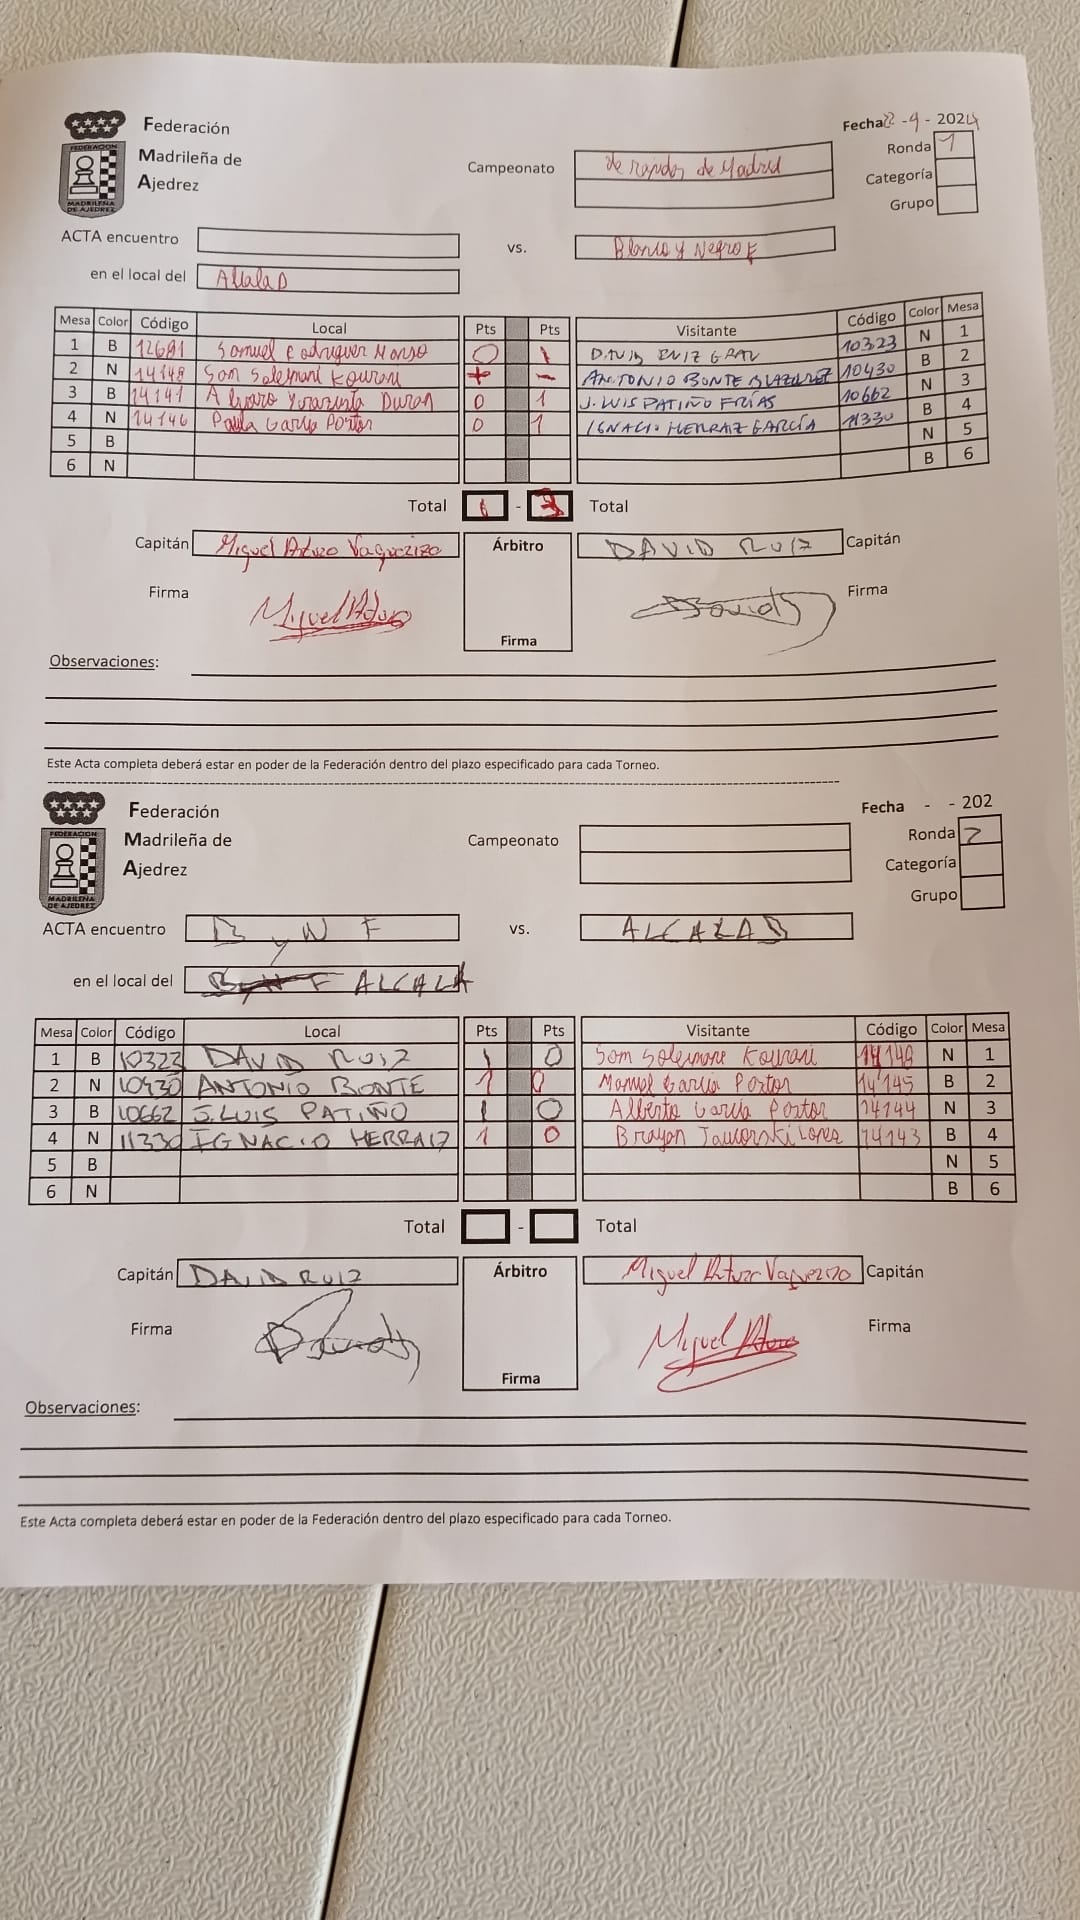 Federación
Madrileña de
Ajedrez
FEDERACION
MADRILEÑA
DE AJEDREZ
Campeonato de rapidos de Madrid
Fecha 22 - 9 - 2024
Ronda 1
Categoría
Grupo
ACTA encuentro vs. Blanco y Negro F
en el local del Alcala D
Mesa Color Código Local Pts Pts Visitante Código Color Mesa
1 B 12691 Samuel Rodriguez Alonso 0 1 DAVID RUIZ GRAU 10323 N 1
2 N 14148 Som Soleimani Kourani + - ANTONIO BONTE BLAZQUEZ 10430 B 2
3 B 14141 Alvaro Duran 0 1 J. LUIS PATIÑO FRÍAS 10662 N 3
4 N 14146 Paula Garcia Portor 0 1 IGNACIO HERRAIZ GARCÍA 11330 B 4
5 B N 5
6 N B 6
Total 1 - 3 Total
Capitán Miguel Arturo Vaquerizo Árbitro DAVID RUIZ Capitán
Firma Miguel Arturo Firma David Firma
Observaciones:
Este Acta completa deberá estar en poder de la Federación dentro del plazo especificado para cada Torneo.
Federación
Madrileña de
Ajedrez
FEDERACION
MADRILEÑA
DE AJEDREZ
Campeonato
Fecha - - 202
Ronda 2
Categoría
Grupo
ACTA encuentro B y N F vs. ALCALA D
en el local del ALCALA
Mesa Color Código Local Pts Pts Visitante Código Color Mesa
1 B 10323 DAVID RUIZ 1 0 Som Soleimani Kourani 14148 N 1
2 N 10430 ANTONIO BONTE 1 0 Manuel Garcia Portor 14145 B 2
3 B 10662 J. LUIS PATIÑO 1 0 Alberto Garcia Portor 14144 N 3
4 N 11330 IGNACIO HERRAIZ 1 0 Brayan Jaworski Lopes 14143 B 4
5 B N 5
6 N B 6
Total - Total
Capitán DAVID RUIZ Árbitro Miguel Arturo Vaquerizo Capitán
Firma David Firma Miguel Arturo Firma
Observaciones:
Este Acta completa deberá estar en poder de la Federación dentro del plazo especificado para cada Torneo.